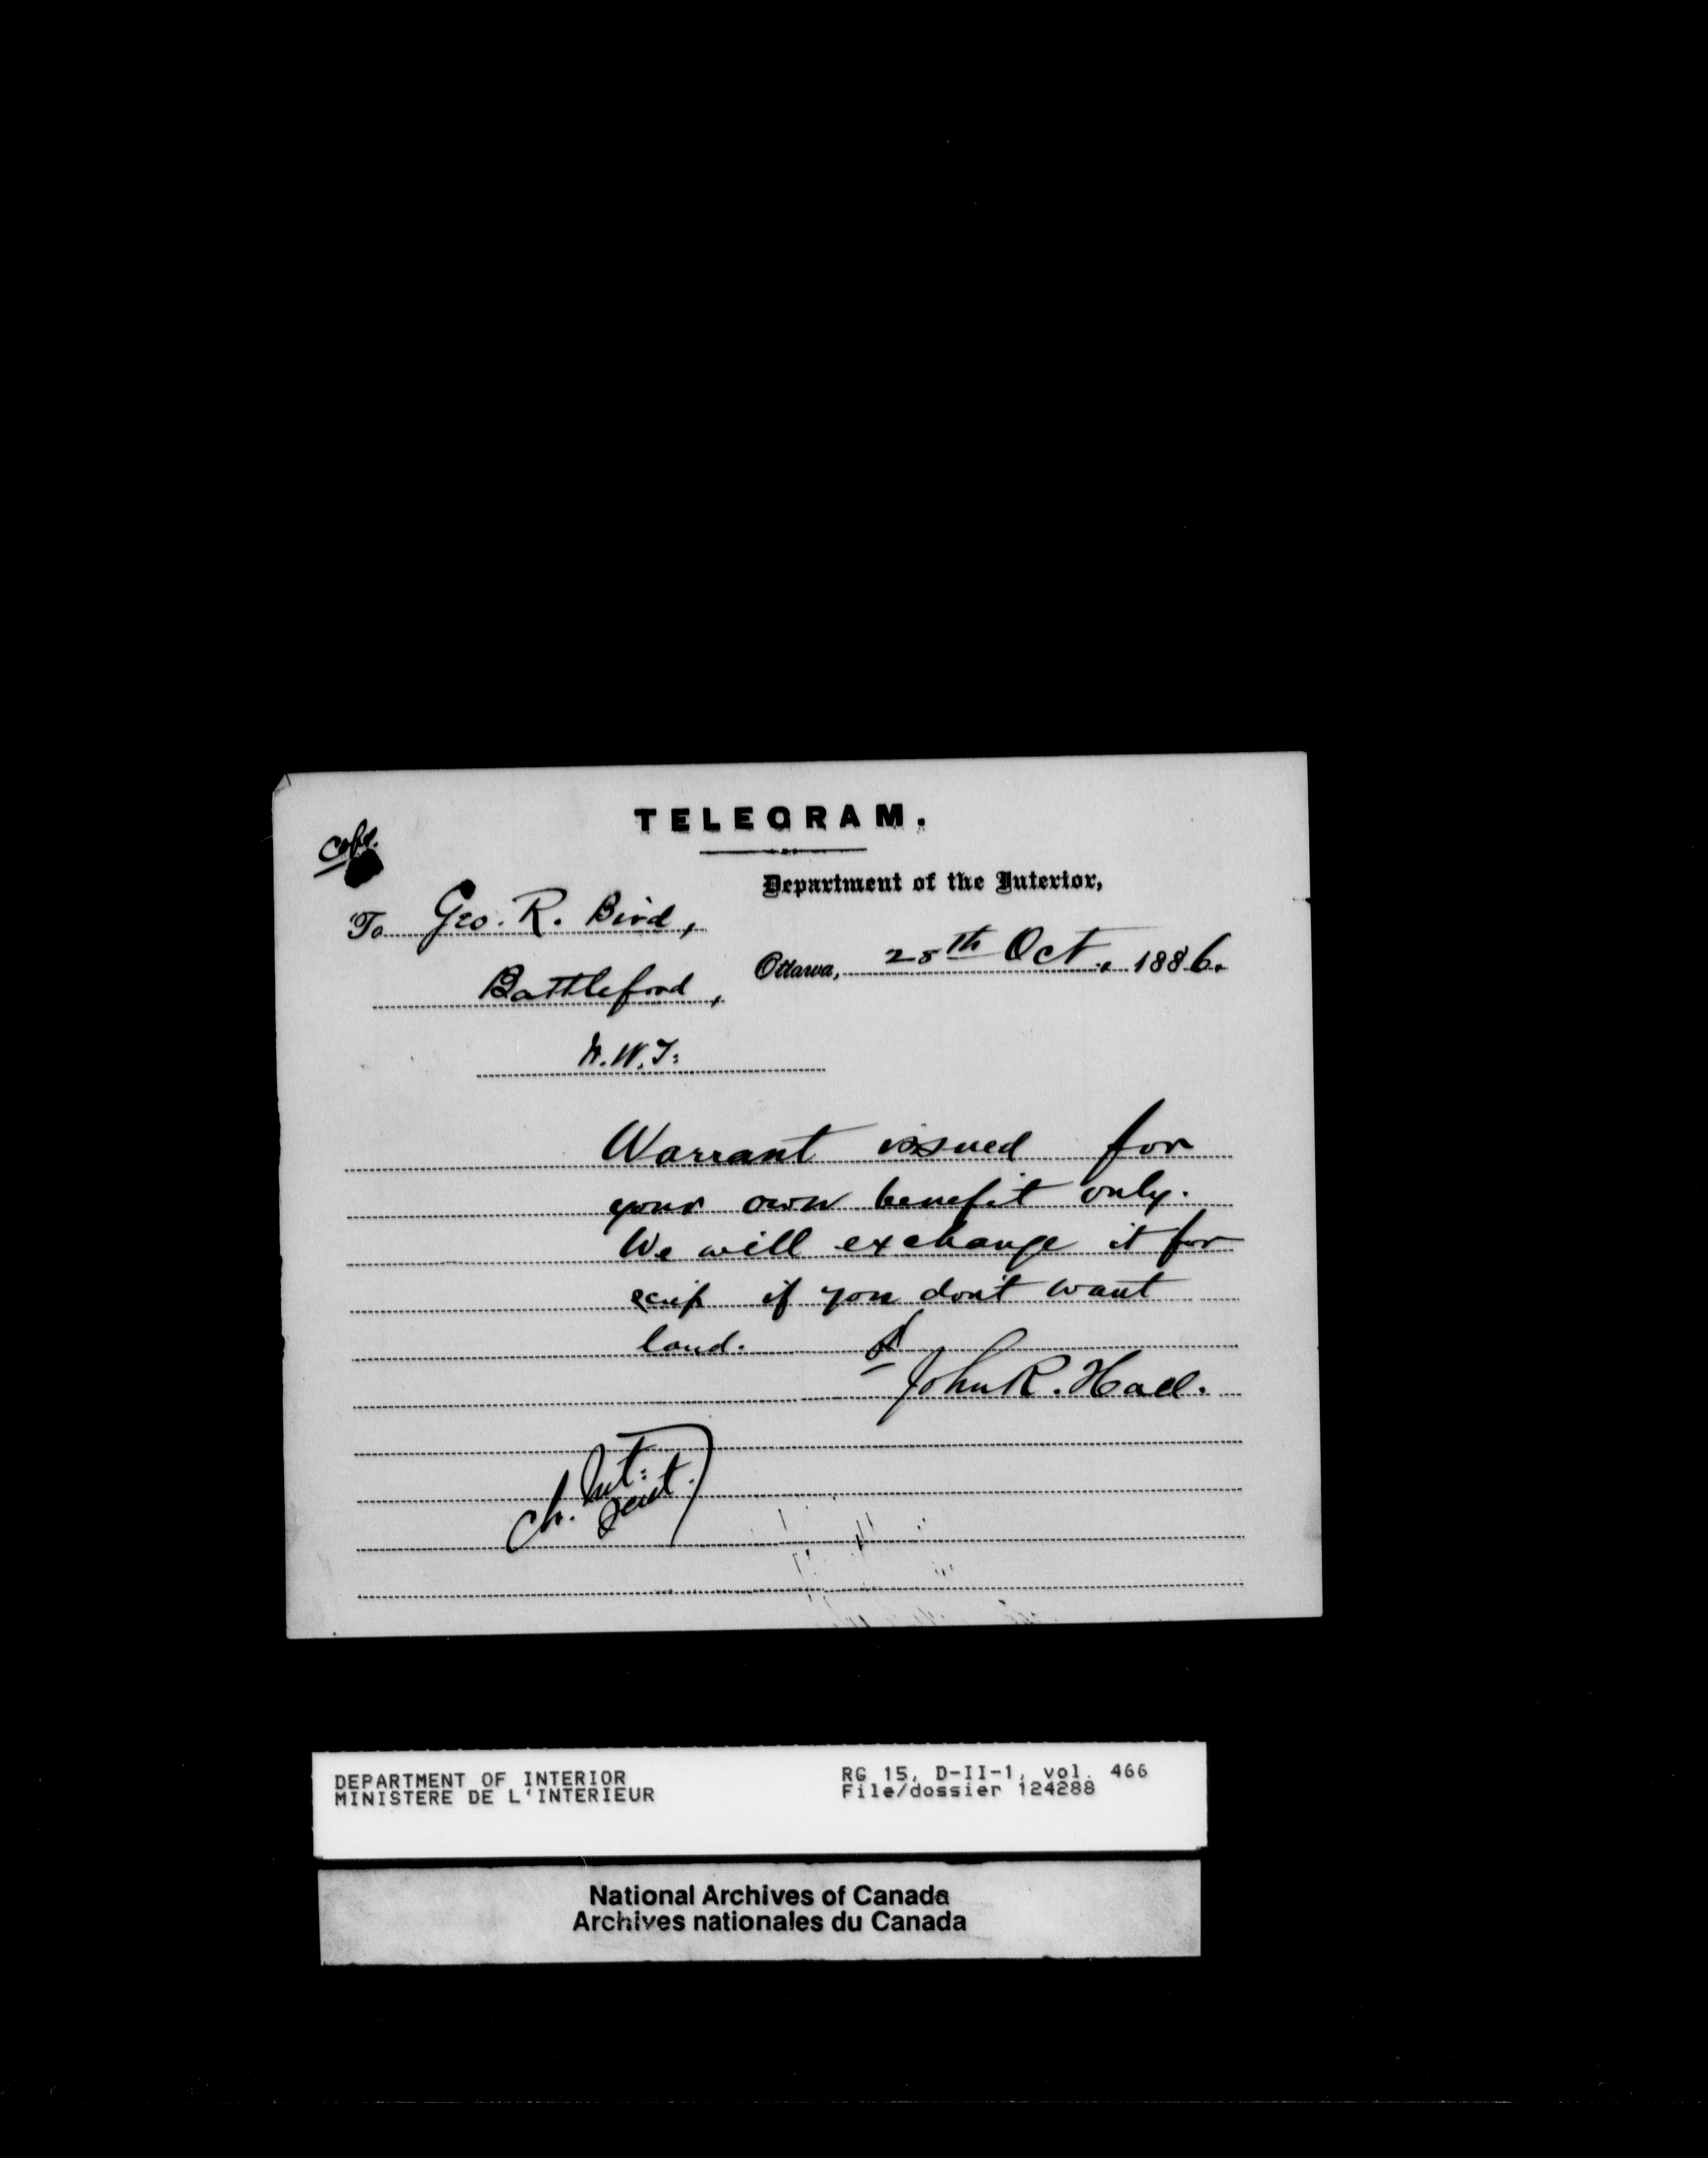 TELEGRAM.
Copy.
Department of the Interior,
To Geo. R. Bird,
Ottawa, 28th Oct., 1886.
Battleford,
N.W.T.
Warrant issued for
your own benefit only.
We will exchange it for
scrip if you don't want
land.
John R. Hall.
Ch. Int:
Dept.
DEPARTMENT OF INTERIOR
MINISTERE DE L'INTERIEUR
RG 15, D-II-1, vol. 466
File/dossier 124288
National Archives of Canada
Archives nationales du Canada